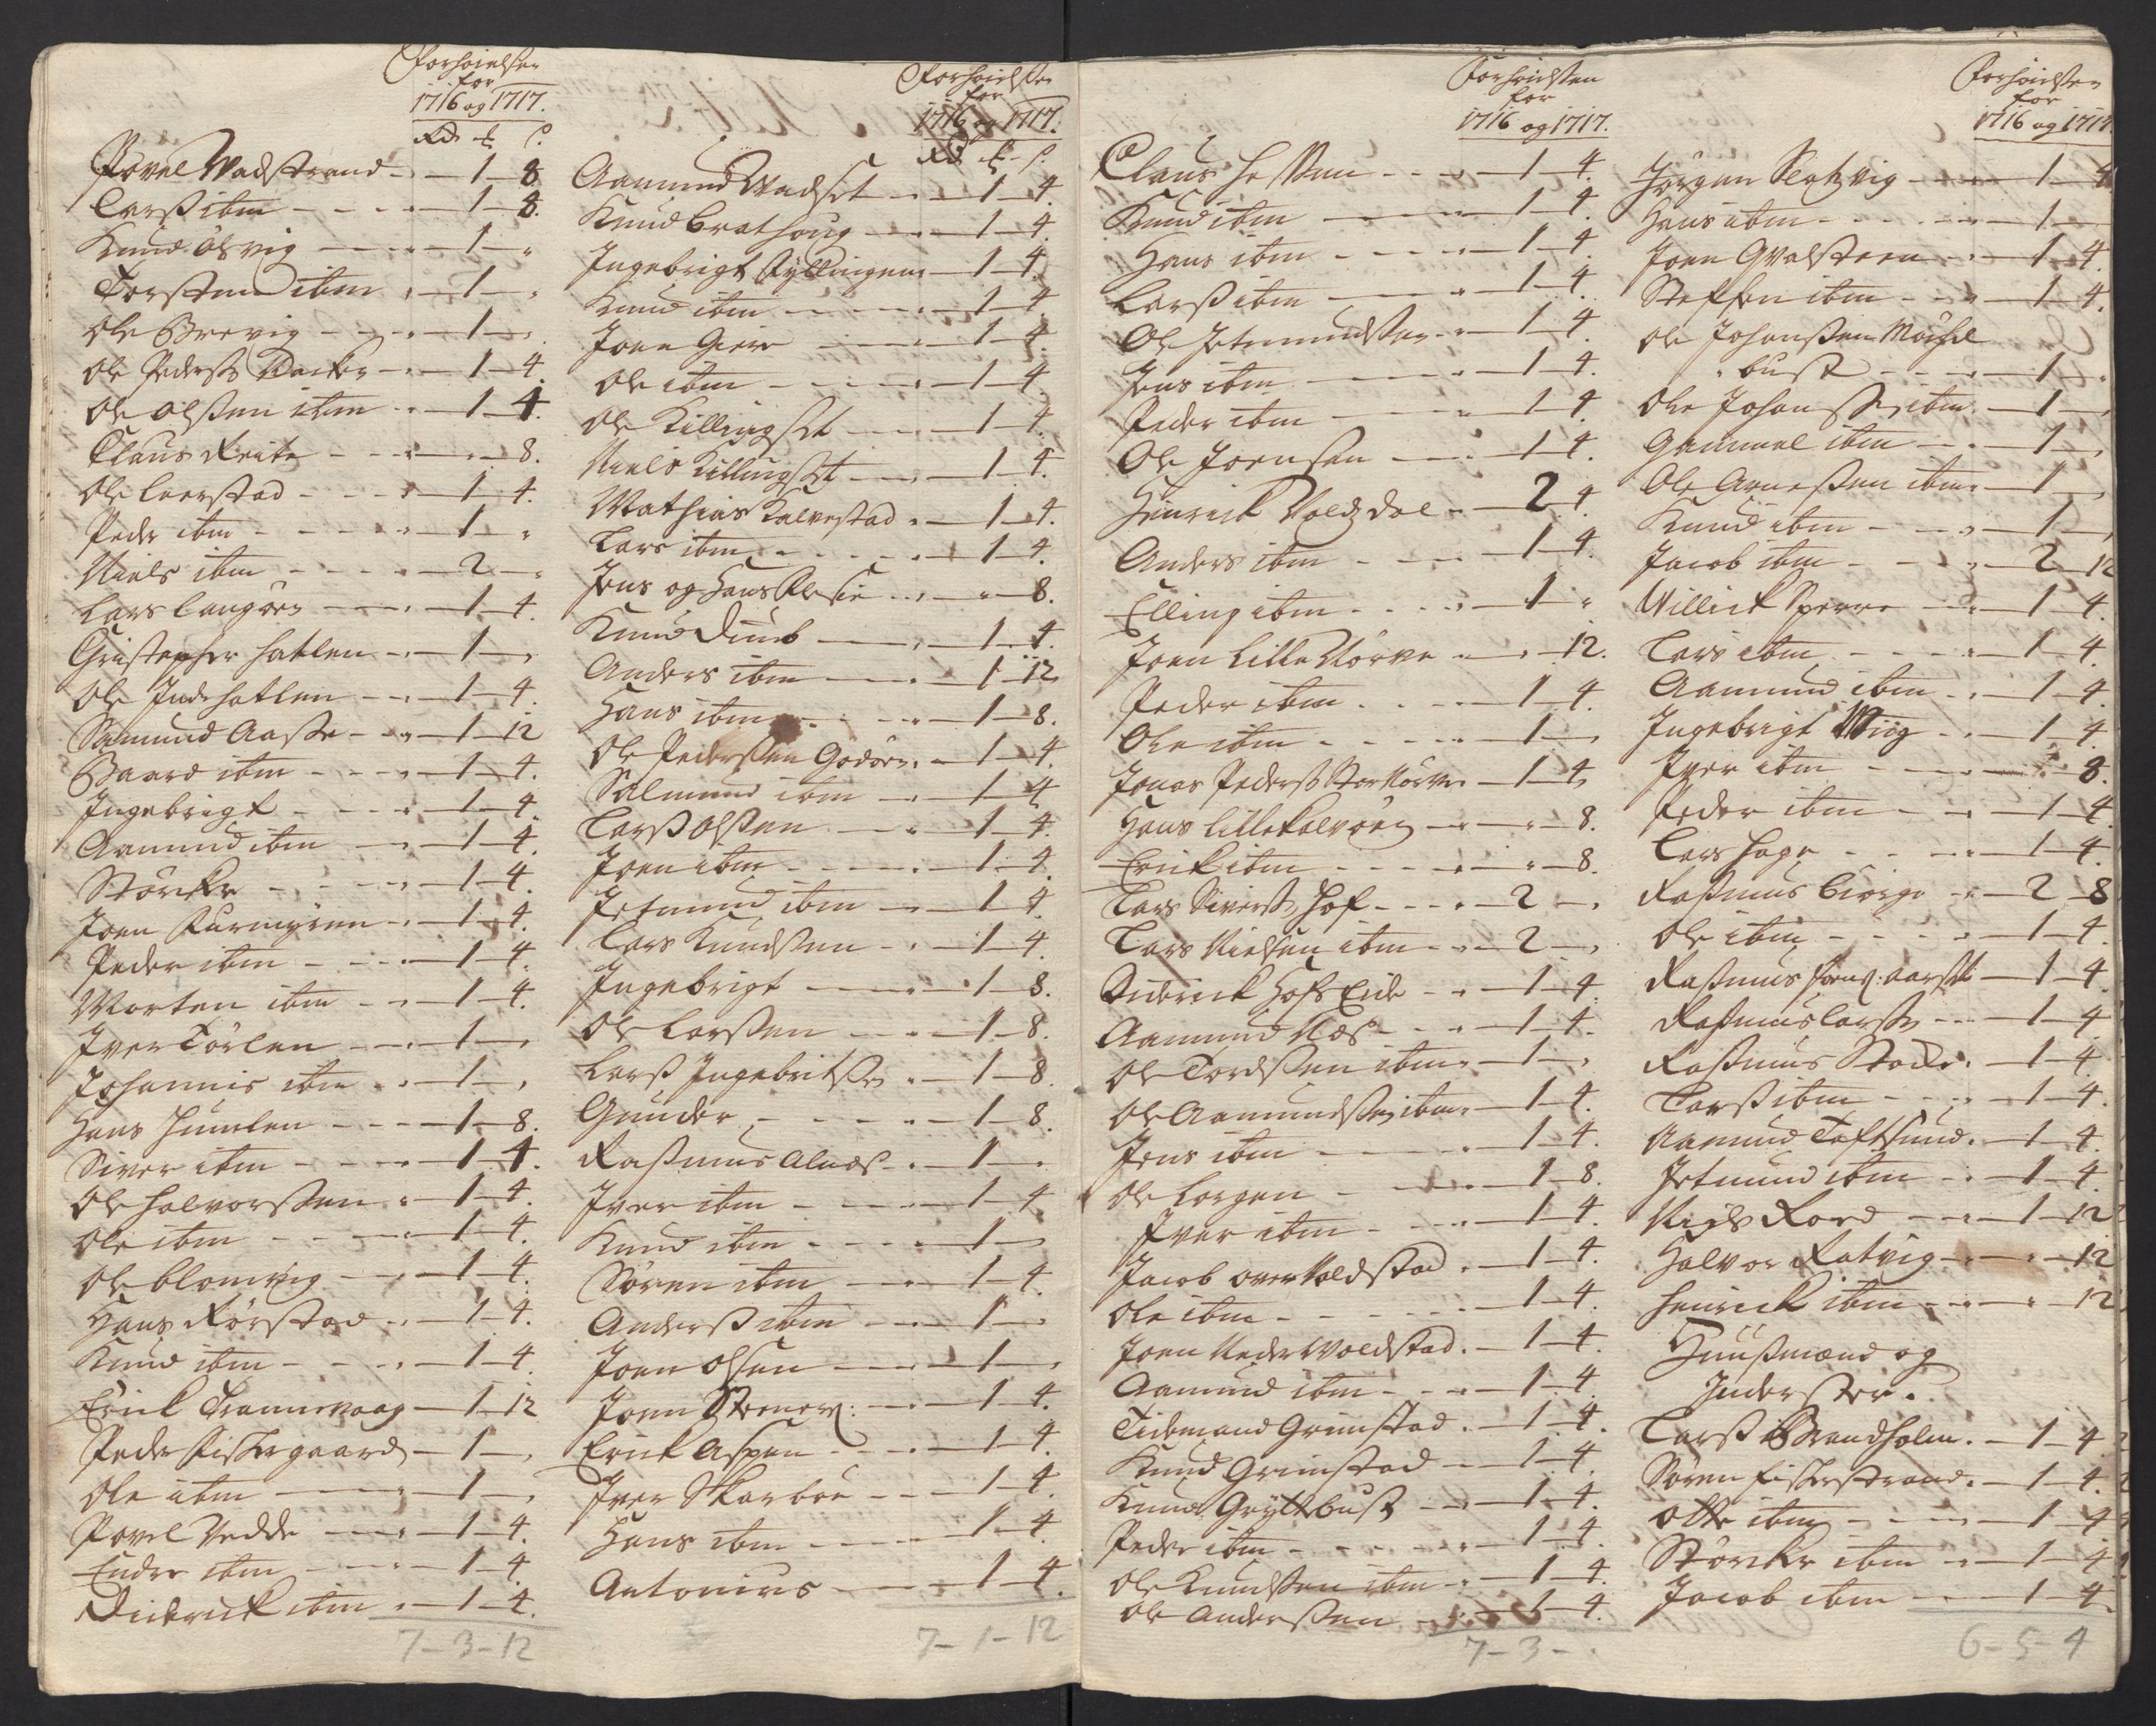 Forhøielsen
for
1716 og 1717.
Rd ℔ s.
Povel Vadstrand - 1 - 8
Larss ibm - 1 - 8.
Knud Ølsvig - 1 - "
Torsten ibm - 1 - "
Ole Brevig - 1 - "
Ole Pederss - 1 - 4.
Ole Olssen ibm - 1 - 4.
Claus Reite - " - 8.
Ole Leerstad - 1 - 4.
Peder ibm - 1 - "
Niels ibm - 2 - "
Lars Langøen - 1 - 4.
Christopher Hatlen - 1 - "
Ole Indrehatlen - 1 - 4.
Samund Aasse - 1 - 12
Baard ibm - 1 - 4.
Ingebrigt - 1 - 4.
Aamund ibm - 1 - 4.
Størcker - 1 - 4.
Joen Furmyren - 1 - 4.
Peder ibm - 1 - 4.
Morten ibm - 1 - 4.
Iver Tørlen - 1 - "
Johannis ibm - 1 - "
Hans Humlen - 1 - 8.
Siver ibm - 1 - 4.
Ole Halvorssen - 1 - 4.
Ole ibm - 1 - 4.
Ole Blomvig - 1 - 4.
Hans Rørstad - 1 - 4.
Knud ibm - 1 - 4.
Erick Trannevaag - 1 - 12
Peder Fiskergaard - 1 - "
Ole ibm - 1 - "
Povel Vedde - 1 - 4.
Endre ibm - 1 - 4.
Diderick ibm - 1 - 4.
7 - 3 - 12
Forhøielsen
for
1716 og 1717.
Rd ℔ s.
Aamund Vadset - 1 - 4.
Knud Brathoug - 1 - 4.
Ingebrigt Fyllingen - 1 - 4.
Knud ibm - 1 - 4.
Joen Giere - 1 - 4.
Ole ibm - 1 - 4.
Ole Killingset - 1 - 4.
Niels Killingset - 1 - 4.
Mathias Kalvestad - 1 - 4.
Lars ibm - 1 - 4.
Jens og Hans - " - 8.
Knud Duueb - 1 - 4.
Anders ibm - 1 - 12
Hans ibm - 1 - 8.
Ole Pederssen Godøen - 1 - 4.
Salmund ibm - 1 - 4.
Larss Olssen - 1 - 4.
Joen ibm - 1 - 4.
Jetmund ibm - 1 - 4.
Lars Knudssen - 1 - 4.
Ingebrigt - 1 - 8.
Ole Larssen - 1 - 8.
Larss Ingebritss - 1 - 8.
Gunder - 1 - 8.
Rasmus Alnæs - 1 - "
Iver ibm - 1 - 4
Knud ibm - 1 - "
Søren ibm - 1 - 4.
Anderss ibm - 1 - "
Joen Olssen - 1 - "
Joen - 1 - 4.
Erick Aspen - 1 - 4.
Iver Skarbøe - 1 - 4.
Hans ibm - 1 - 4
Antonius - 1 - 4.
7 - 1 - 12
Forhøielsen
for
1716 og 1717.
Claus Hessen - 1 - 4.
Knud ibm - 1 - 4.
Hans ibm - 1 - 4.
Larss ibm - 1 - 4.
Ole Jetmundssen - 1 - 4.
Jens ibm - 1 - 4.
Peder ibm - 1 - 4.
Ole Joensen - 1 - 4.
Henrick Voldsdal - 2 - 4.
Anders ibm - 1 - 4.
Elling ibm - 1 - "
Joen Lille Nørve - " - 12.
Peder ibm - 1 - 4.
Ole ibm - 1 - "
Jonas Pederss Stor Nørve - 1 - 4
Hans Lillekalvøen - " - 8.
Erick ibm - " - 8.
Lars Siverss Hof - 2 - "
Lars Nielsen ibm - 2 - "
Diderick Hofs Eide - 1 - 4.
Aamund Næs - 1 - 4.
Ole Tordssen ibm - 1 - "
Ole Aamundssen ibm - 1 - 4.
Jens ibm - 1 - 4.
Ole Longen - 1 - 8.
Iver ibm - 1 - 4.
Jacob over Voldstad - 1 - 4.
Ole ibm - 1 - 4.
Joen Neder Woldstad - 1 - 4.
Aamund ibm - 1 - 4.
Tidemand Grimstad - 1 - 4.
Knud Grimstad - 1 - 4.
Knud Gryttbust - 1 - 4.
Peder ibm - 1 - 4.
Ole Knudssen ibm - 1 - 4.
Ole Anderssen - 1 - 4.
7 - 3 -
Forhøielsen
for
1716 og 1717.
Jørgen Slotzvig - 1 - 4
Hans ibm - 1 -
Joen Qvalsteen - 1 - 4.
Steffen ibm - 1 - 4.
Ole Johanssen Mochel
bust - 1 - "
Ole Johanssen ibm - 1 - "
Gammel ibm - 1 - "
Ole Arnessen ibm - 1 - "
Knud ibm - 1 - "
Jacob ibm - 2 - 12
Willick Sperre - 1 - 4.
Lars ibm - 1 - 4.
Aamund ibm - 1 - 4.
Ingebrigt Miig - 1 - 4.
Iver ibm - 8.
Peder ibm - 1 - 4.
Lars Hage - 1 - 4.
Rasmus Biørge - 2 - 8
Ole ibm - 1 - 4.
Rasmus - 1 - 4.
Rasmus Larss - 1 - 4
Rasmus Stocke - 1 - 4
Larss ibm - 1 - 4.
Aamund Toftsund - 1 - 4.
Jetmund ibm - 1 - 4.
Niels Roed - 1 - 12
Halvor Ratvig - " - 12
Henrick ibm - " - 12
Huussmænd og
Inderster.
Larss Brandholm - 1 - 4.
Søren Fiskerstrand - 1 - 4.
Otte ibm - 1 - 4
Størcker ibm - 1 - 4
Jacob ibm - 1 - 4.
6 - 5 - 4